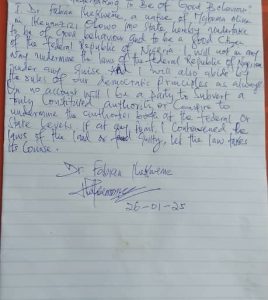 Undertaking to Be of Good Behaviour
I Dr. Fabian Ihekweme, a native of
in Ikeduru LGA of Imo State, hereby undertake
to be of Good behaviour and to be a good Citizen
of the Federal Republic of Nigeria. I will not in any
way undermine the laws of the Federal Republic of Nigeria
under any guise. I will also abide by
the rules of democratic principles as always
On no account will I be a party to Subvert a
Duly Constituted authority or Conspire to
undermine the authorities both at the Federal or
State Levels. If at any point I Contravened the
laws of the land or guilty, let the law takes
its Course.
Dr. Fabian Ihekweme
26-01-25